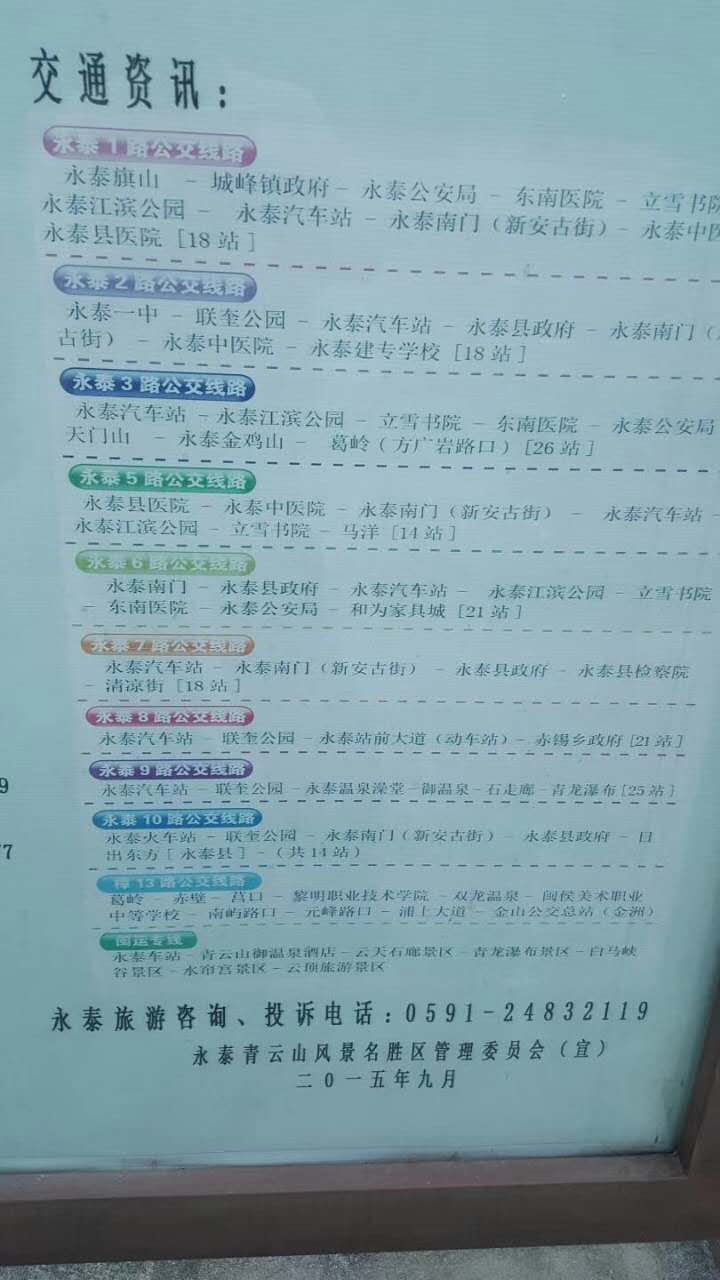 交通资讯：
永泰1路公交线路
永泰旗山 - 城峰镇政府 - 永泰公安局 - 东南医院 - 立雪书院
永泰江滨公园 - 永泰汽车站 - 永泰南门（新安古街）- 永泰中医
永泰县医院 [18 站 ]
永泰2路公交线路
永泰一中 - 联奎公园 - 永泰汽车站 - 永泰县政府 - 永泰南门（
古街） - 永泰中医院 - 永泰建专学校 [18 站 ]
永泰3路公交线路
永泰汽车站 - 永泰江滨公园 - 立雪书院 - 东南医院 - 永泰公安局
天门山 - 永泰金鸡山 - 葛岭（方广岩路口）[26 站 ]
永泰5路公交线路
永泰县医院 - 永泰中医院 - 永泰南门（新安古街） - 永泰汽车站 -
永泰江滨公园 - 立雪书院 - 马洋 [14 站 ]
永泰6路公交线路
永泰南门 - 永泰县政府 - 永泰汽车站 - 永泰江滨公园 - 立雪书院
- 东南医院 - 永泰公安局 - 和为家具城 [21 站 ]
永泰7路公交线路
永泰汽车站 - 永泰南门（新安古街） - 永泰县政府 - 永泰县检察院
- 清凉街 [18 站 ]
永泰8路公交线路
永泰汽车站 - 联奎公园 - 永泰站前大道（动车站）- 赤锡乡政府 [21 站 ]
永泰9路公交线路
永泰汽车站 - 联奎公园 - 永泰温泉澡堂 - 御温泉 - 石走廊 - 青龙瀑布 [25 站 ]
9
永泰10路公交线路
永泰火车站 - 联奎公园 - 永泰南门（新安古街）- 永泰县政府 - 日
出东方 [ 永泰县 ] - （共 14 站）
77
樟13路公交线路
葛岭 - 赤壁 - 莒口 - 黎明职业技术学院 - 双龙温泉 - 闽侯美术职业
中等学校 - 南屿路口 - 元峰路口 - 浦上大道 - 金山公交总站（金洲）
闽运专线
永泰车站 - 青云山御温泉酒店 - 云天石廊景区 - 青龙瀑布景区 - 白马峡
谷景区 - 水帘宫景区 - 云顶旅游景区
永泰旅游咨询、投诉电话：0591-24832119
永泰青云山风景名胜区管理委员会（宣）
二0一五年九月